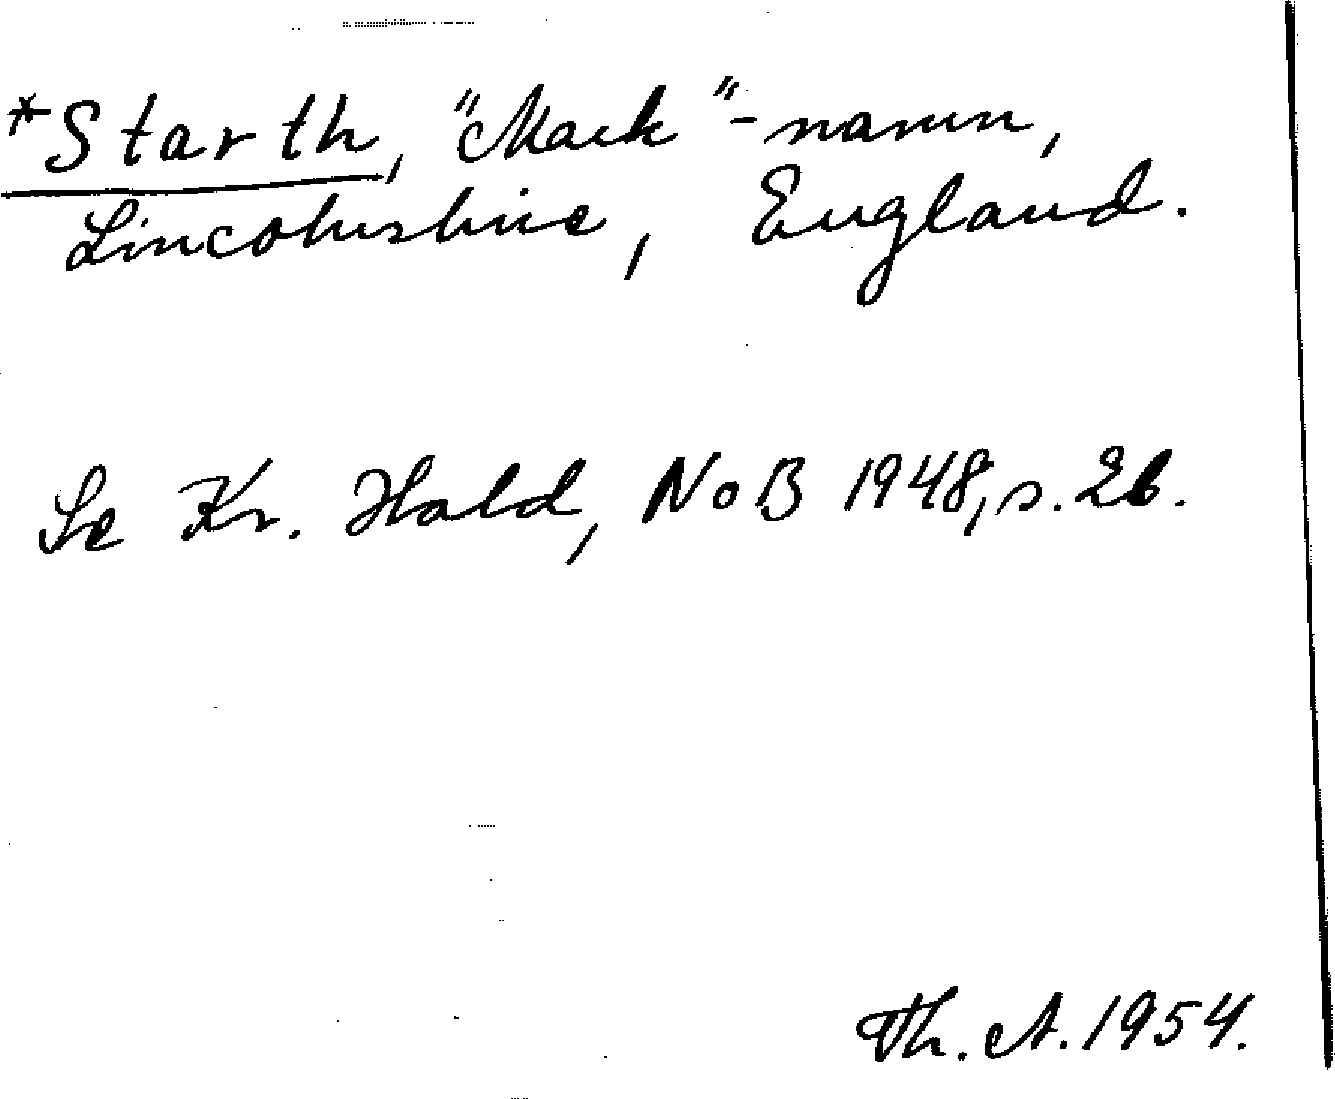 *Starth, "Mark"-namn,
Lincolnshire, England.
Se Kr. Hald, NoB 1948, s. 26.
Th. A. 1954.